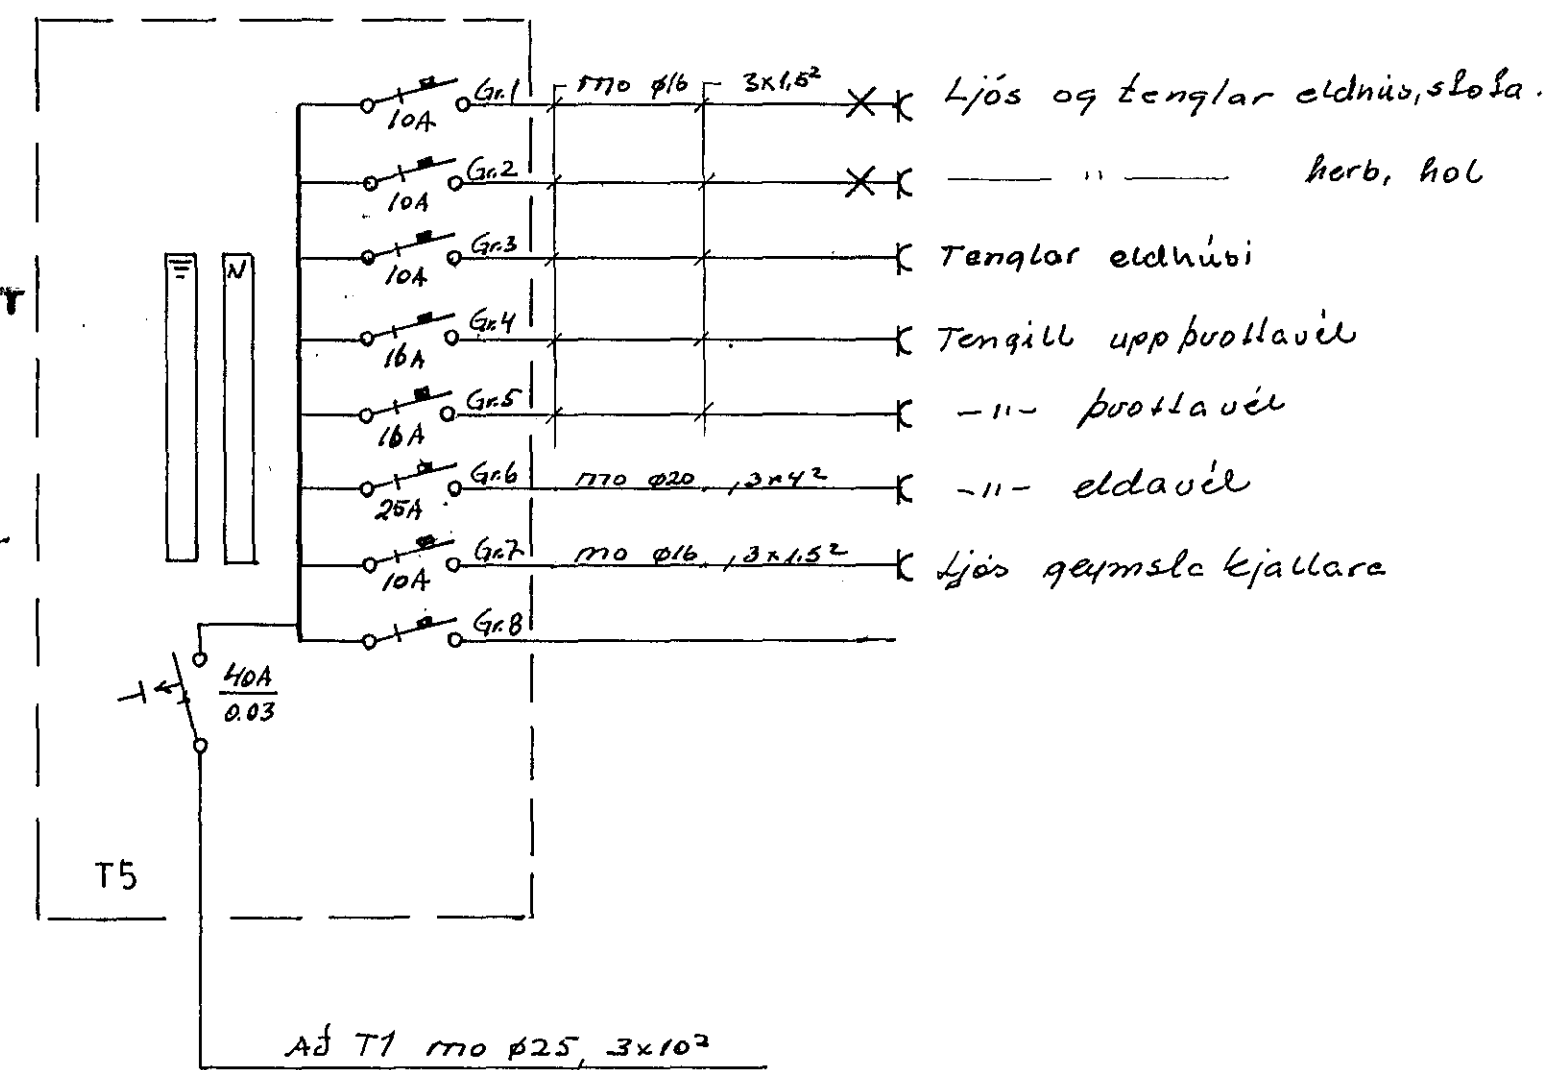 Gr.1 mo ø16 3x1,5² Ljós og tenglar eldhús, stofa.
10A
Gr.2 — " — herb, hol
10A
Gr.3 Tenglar eldhúsi
10A
N
Gr.4 Tengill uppþvottavél
16A
Gr.5 -"- þvottavél
16A
Gr.6 mo ø20, 3x4² -"- eldavél
25A
Gr.7 mo ø16, 3x1.5² Ljós geymsla kjallara
10A
Gr.8
40A
0.03
T5
Að T1 mo ø25, 3x10²